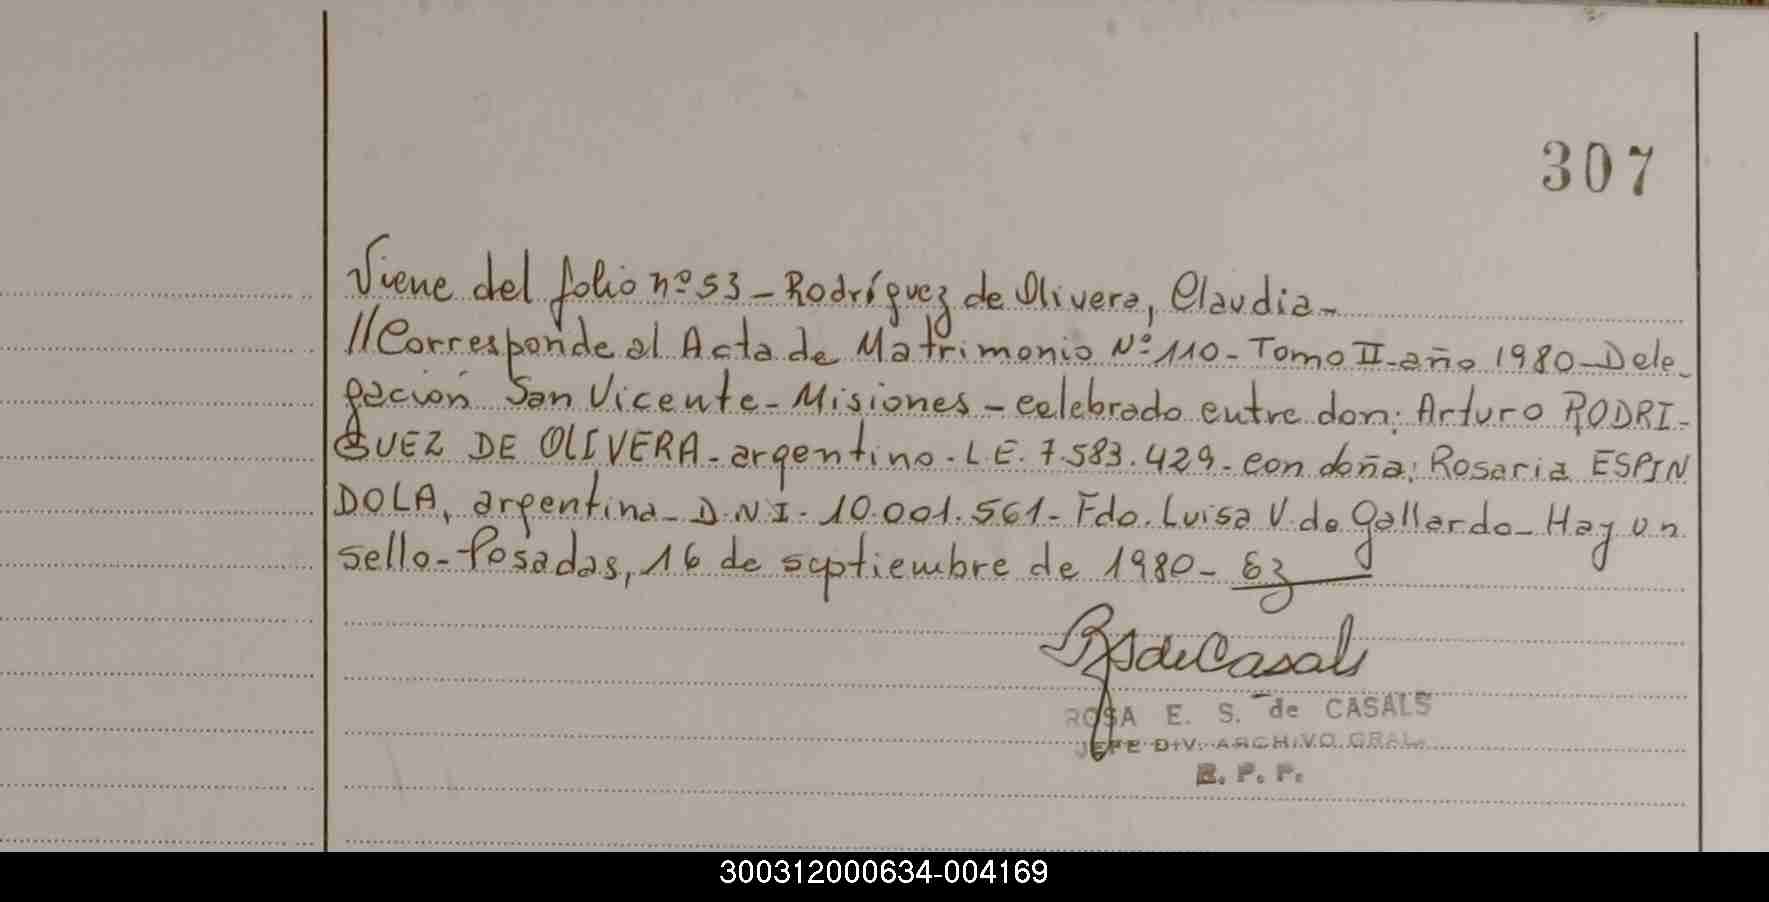 307
Viene del folio nº 53 - Rodríguez de Olivera, Claudia -
//Corresponde al Acta de Matrimonio Nº 110 - Tomo II - año 1980 - Dele-
gación San Vicente - Misiones - celebrado entre don: Arturo RODRI-
GUEZ DE OLIVERA - argentino - L E. 7.583.429 - con doña: Rosaria ESPIN
DOLA, argentina - D.N.I. - 10.001.561 - Fdo. Luisa V. de Gallardo - Hay un
sello - Posadas, 16 de septiembre de 1980 -
RSdeCasals
ROSA E. S. de CASALS
JEFE DIV. ARCHIVO GRAL.
R. P. P.
300312000634-004169